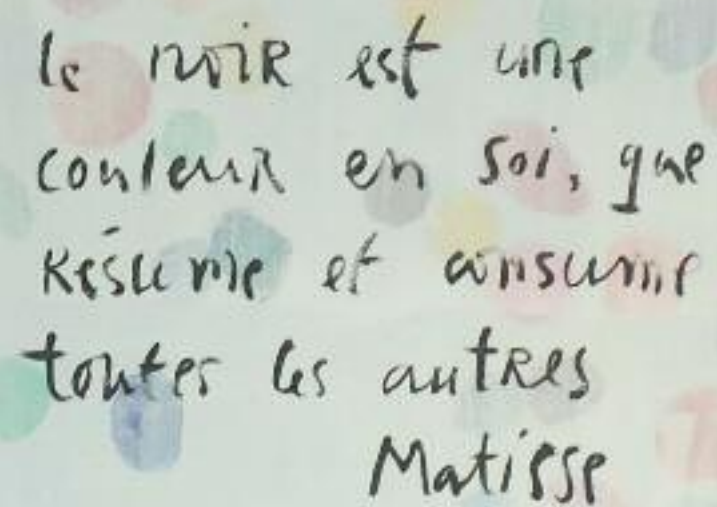 le noir est une
couleur en soi, que
résume et consume
toutes les autres
Matisse